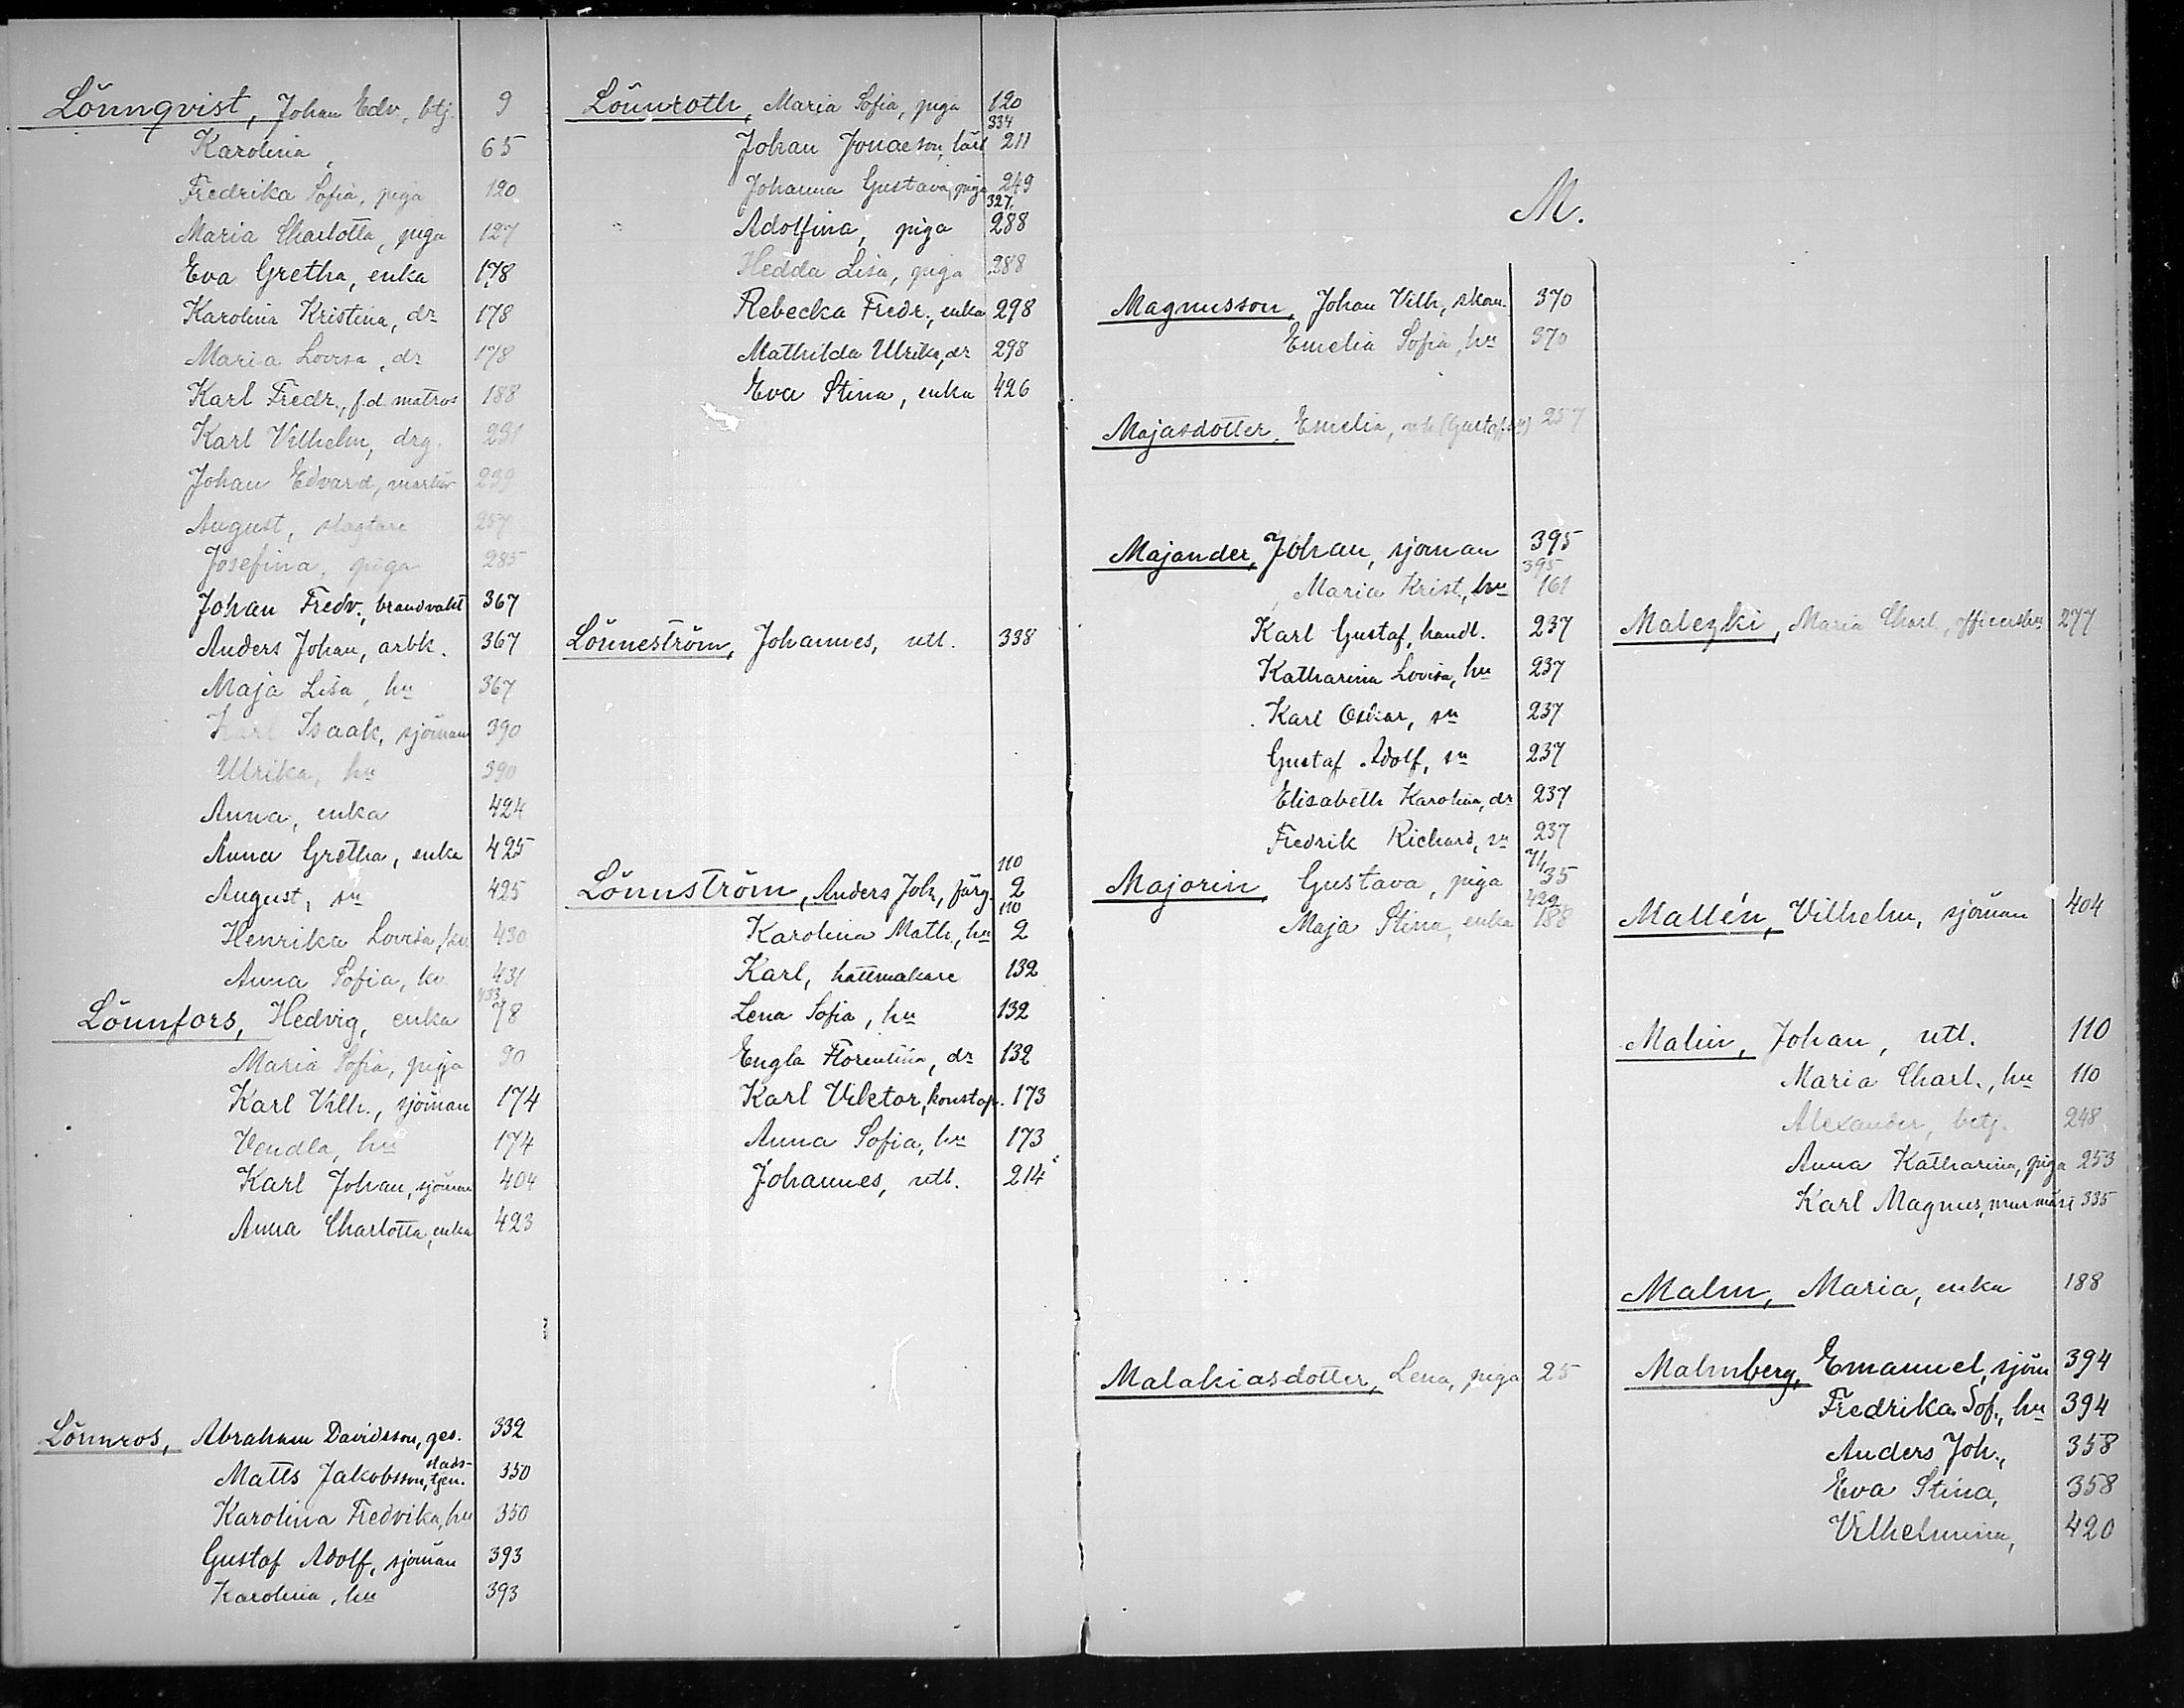 Lönnqvist, Johan Edv., btj. 9
Karolina, 65
Fredrika Sofia, piga 120
Maria Charlotta, piga 127
Eva Gretha, enka 178
Karolina Kristina, dr 178
Maria Lovisa, dr 178
Karl Fredr., f.d. matros 188
Karl Vilhelm, drg. 231
Johan Edvard, 239
August, slagtare 257
Josefina, piga 285
Johan Fredr., brandvakt 367
Anders Johan, arbk. 367
Maja Lisa, hu 367
Karl Isaak, sjöman 390
Ulrika, hu 390
Anna, enka 424
Anna Gretha, enka 425
August, sn 425
Henrika Lovisa, kv. 430
Anna Sofia, kv. 431
433
Lönnfors, Hedvig, enka 78
Maria Sofia, piga 90
Karl Vilh., sjöman 174
Vendla, hu 174
Karl Johan, sjöman 404
Anna Charlotta, enka 423
Lönnros, Abraham Davidsson, ges. 332
Matts Jakobsson, stads-tjen. 350
Karolina Fredrika, hu 350
Gustaf Adolf, sjöman 393
Karolina, hu 393
Lönnroth, Maria Sofia, piga 120
334
Johan Jonaeson, lärl 211
Johanna Gustava, piga 249
327.
Adolfina, piga 288
Hedda Lisa, piga 288
Rebecka Fredr., enka 298
Mathilda Ulrika, dr 298
Eva Stina, enka 426
Lönneström, Johannes, utl. 338
110
Lönnström, Anders Joh., färg. 2
110
Karolina Math., hu 2
Karl, hattmakare 132
Lena Sofia, hu 132
Engla Florentina, dr 132
Karl Viktor, konstap. 173
Anna Sofia, hu 173
Johannes, utl. 214
M.
Magnusson, Johan Vilh., skom. 370
Emelia Sofia, hu 370
Majasdotter, Emelia, (Gustafson) 257
Majander, Johan, sjöman 395
395
Maria Krist., hu 161
Karl Gustaf, handl. 237
Katharina Lovisa, hu 237
Karl Oskar, sn 237
Gustaf Adolf, sn 237
Elisabeth Karolina, dr 237
Fredrik Richard, sn 237
71,
Majorin, Gustava, piga 35
422
Maja Stina, enka 188
Malakiasdotter, Lena, piga 25
Malezki, Maria Charl., officershu 277
Mallén, Vilhelm, sjöman 404
Malin, Johan, utl. 110
Maria Charl., hu 110
Alexander, betj. 248
Anna Katharina, piga 253
Karl Magnus, murmäst 335
Malm, Maria, enka 188
Malmberg, Emanuel, sjöm 394
Fredrika Sof., hu 394
Anders Joh., 358
Eva Stina, 358
Vilhelmina, 420